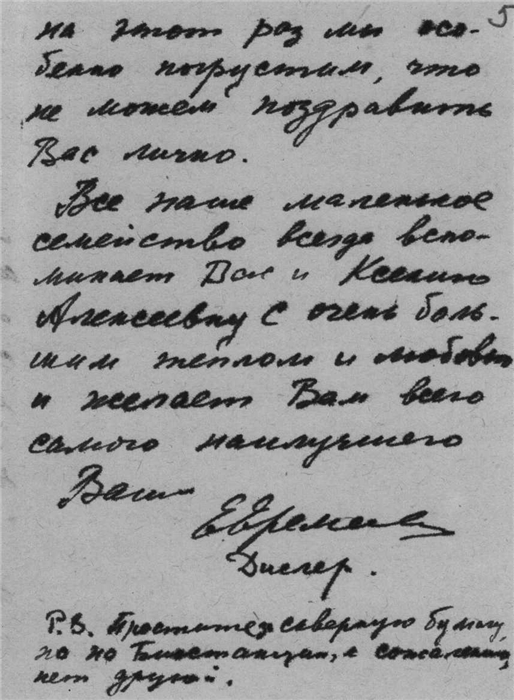 5
на этот раз мы осо-
бенно погрустим, что
не можем поздравить
Вас лично.
Все наше маленькое
семейство всегда вспо-
минает Вас и Ксению
Алексеевну с очень боль-
шим теплом и любовью
и желает Вам всего
самого наилучшего
Ваш
P.S. Простите за скверную бумагу,
но на , к сожалению,
нет другой.